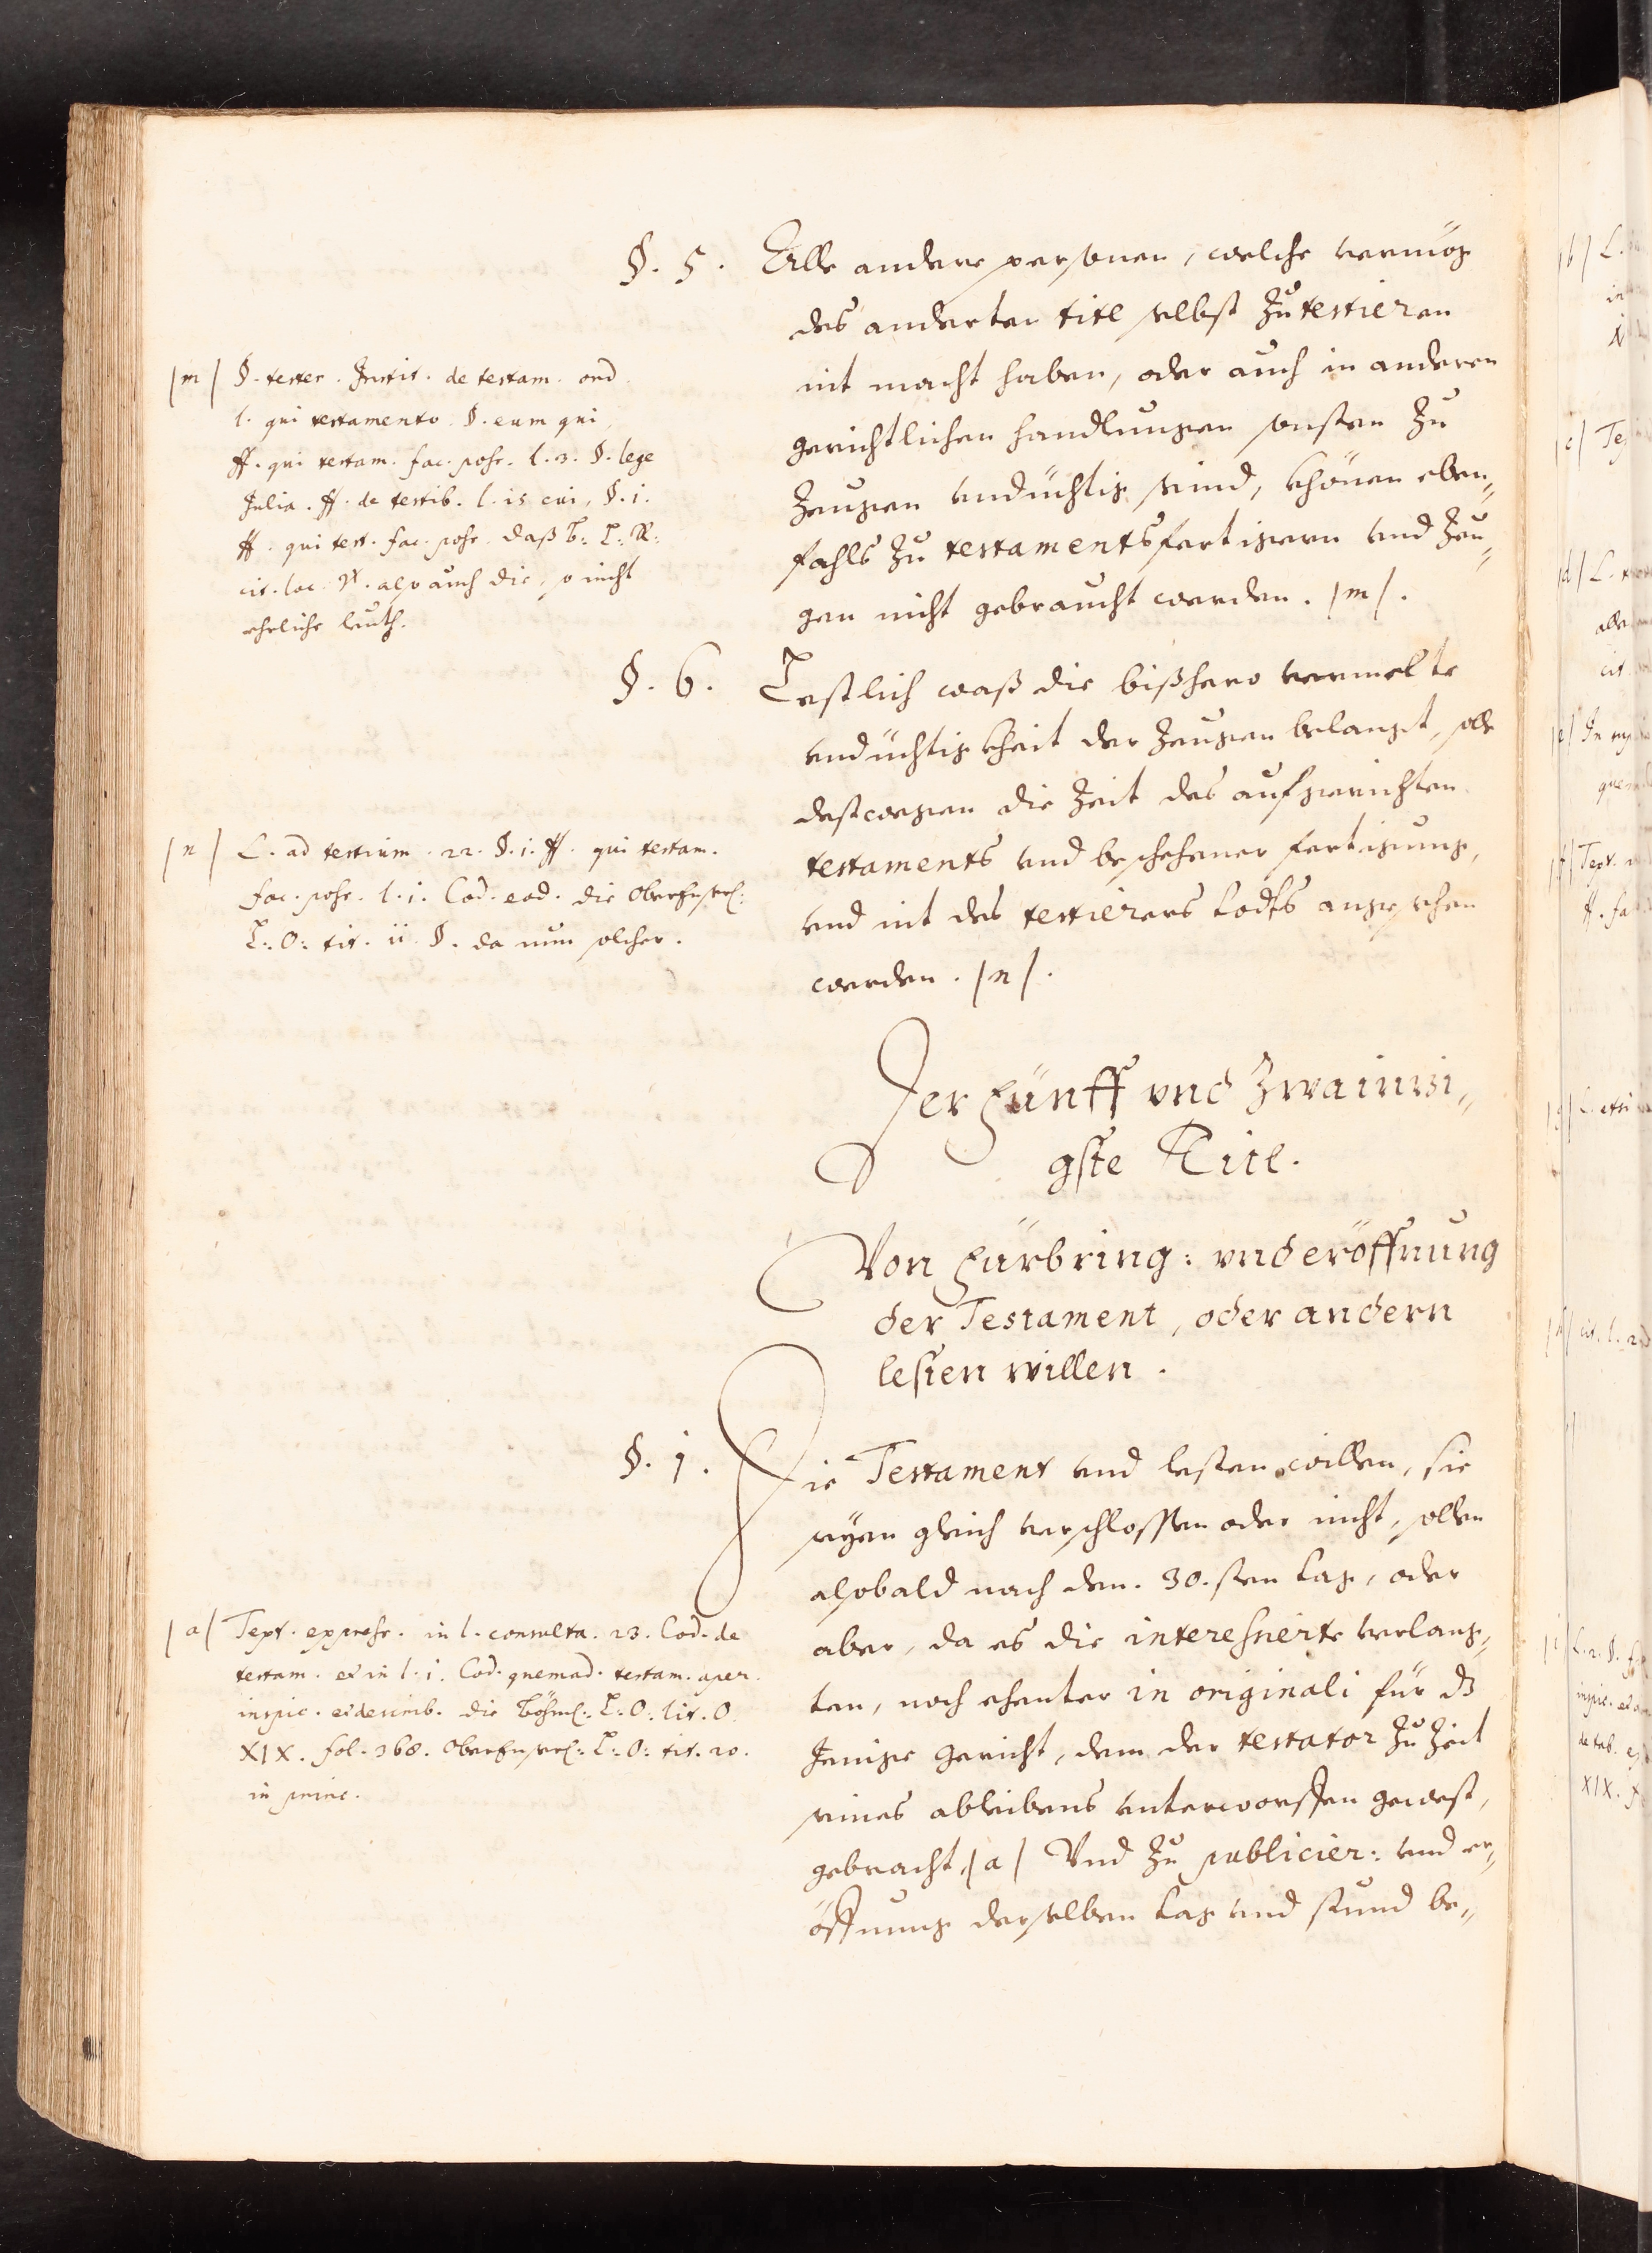 §. 5. Alle andere personen, welche vermög
des anderten titl selbst zu testieren
nit macht haben, oder auch in anderen
gerichtlichen handlungen sonsten zu
zeugen undüchtig sind, khönen eben„
fahls zu testamentsfertigern und zeu„
gen nicht gebraucht werden. /m/.
/m/ §. testes. Instit. de testam. ord.
l. qui testamento. §. eum qui
ff. qui testam. fac. poss. l. 3. §. lege
Julia. ff. de testib. l. is cui, §. 1.
ff. qui test. fac. poss. daß B: L: R:
cit. loc. also auch die, so nicht
ehrliche leuth.
§. 6. Lestlich waß die bißhero vermelte
undüchtigkheit der zeugen belangt, solle
destwegen die zeit des aufgerichten
testaments und beschehener fertigung,
und nit des testierers todts angesehen
werden. /n/.
/n/ L. ad testium. 22. §. 1. ff. qui testam.
fac. poss. l. 1. Cod. eod. die Oberennserl:
L: O: tit. 11. §. da nun solcher.
Der Fünff und zwainzi„
gste Titl.
Von Fürbring: und eröffnung
der Testament, oder andern
lesten willen.
§. 1. Die Testament und lesten willen, sie
seyen gleich verschlossen oder nicht, sollen
alsobald nach dem 30.sten tag, oder
aber, da es die interessierte verlang„
ten, noch ehenter in originali für dz
Jenige gericht, dem der testator zu zeit
seines ableibens unterworffen gewest,
gebracht, /a/ Und zu publicier: und er„
öffnung derselben tag und stund be„
/a/ Text. express. in l. consulta. 23. Cod. de
testam. et in l. 1. Cod. quemad. testam. aper.
inspic. et describ. die Böhml: L: O: lit. O.
XIX. fol. 368. Oberennserl: L: O: tit. 20.
in princ.